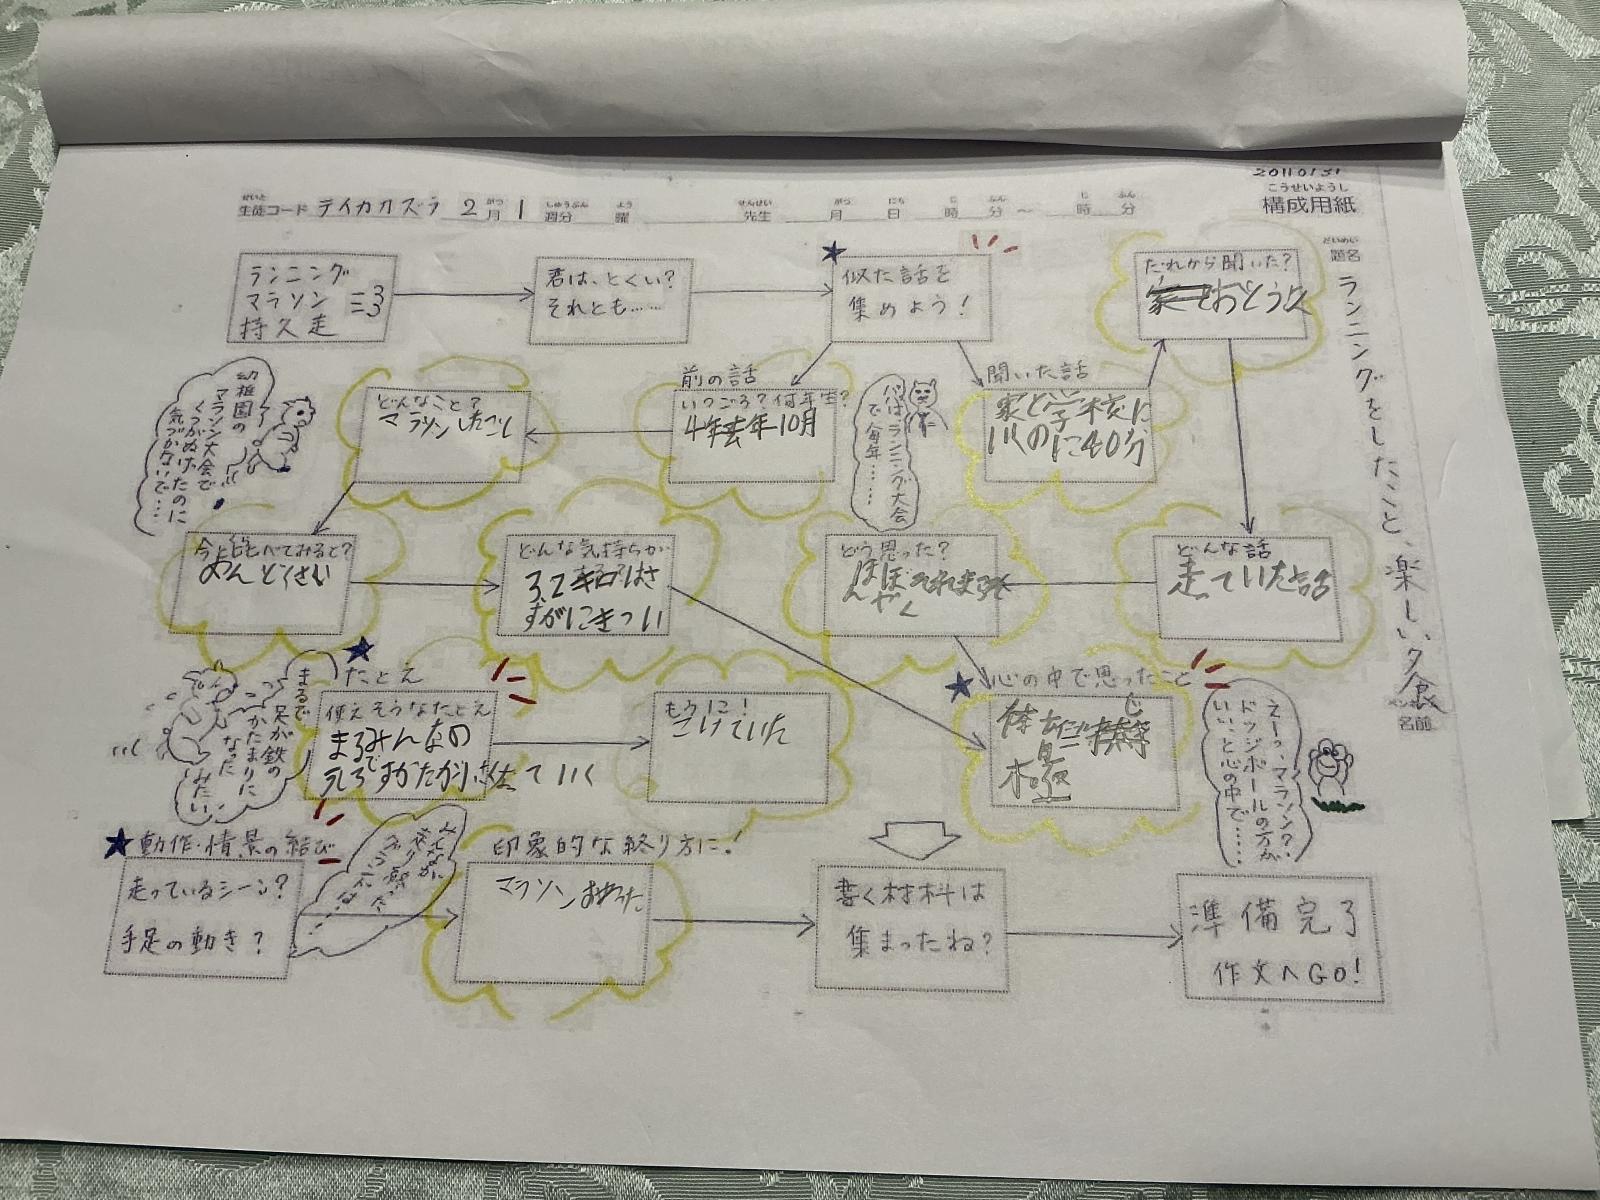 20110131
こうせいようし
構成用紙
せいと
生徒コード テイカカズラ 2月 1週分 曜 先生 月 日 時 分〜 時 分
だいめい
題名
ランニングをしたこと、楽しい夕食
ペンネーム
名前
ランニング
マラソン
持久走
君は、とくい?
それとも……
似た話を
集めよう!
だれから聞いた?
おとうさん
聞いた話
家と学校に
いくのに40分
パパはランニング大会
で毎年……
前の話
いつごろ?何年生?
4年去年10月
どんなこと?
マラソンしたこと
幼稚園の
マラソン大会で
くつがぬけたのに
気づかないで…
今と比べてみると?
めんどくさい
どんな気持ちが
3.2キロはさ
すがにきつい
どう思った?
どんな話
走ていた話
心の中で思ったこと
えーっ、マラソン?
ドッジボールの方が
いいと心の中で……
たとえ
使えそうなたとえ
まるで
足が鉄の
かたまりに
なった
みたい
もうに!
こけていた
動作・情景の結び
走っているシーン?
手足の動き?
印象的な終り方に!
マラソンおわった
書く材料は
集まったね?
準備完了
作文へGO!